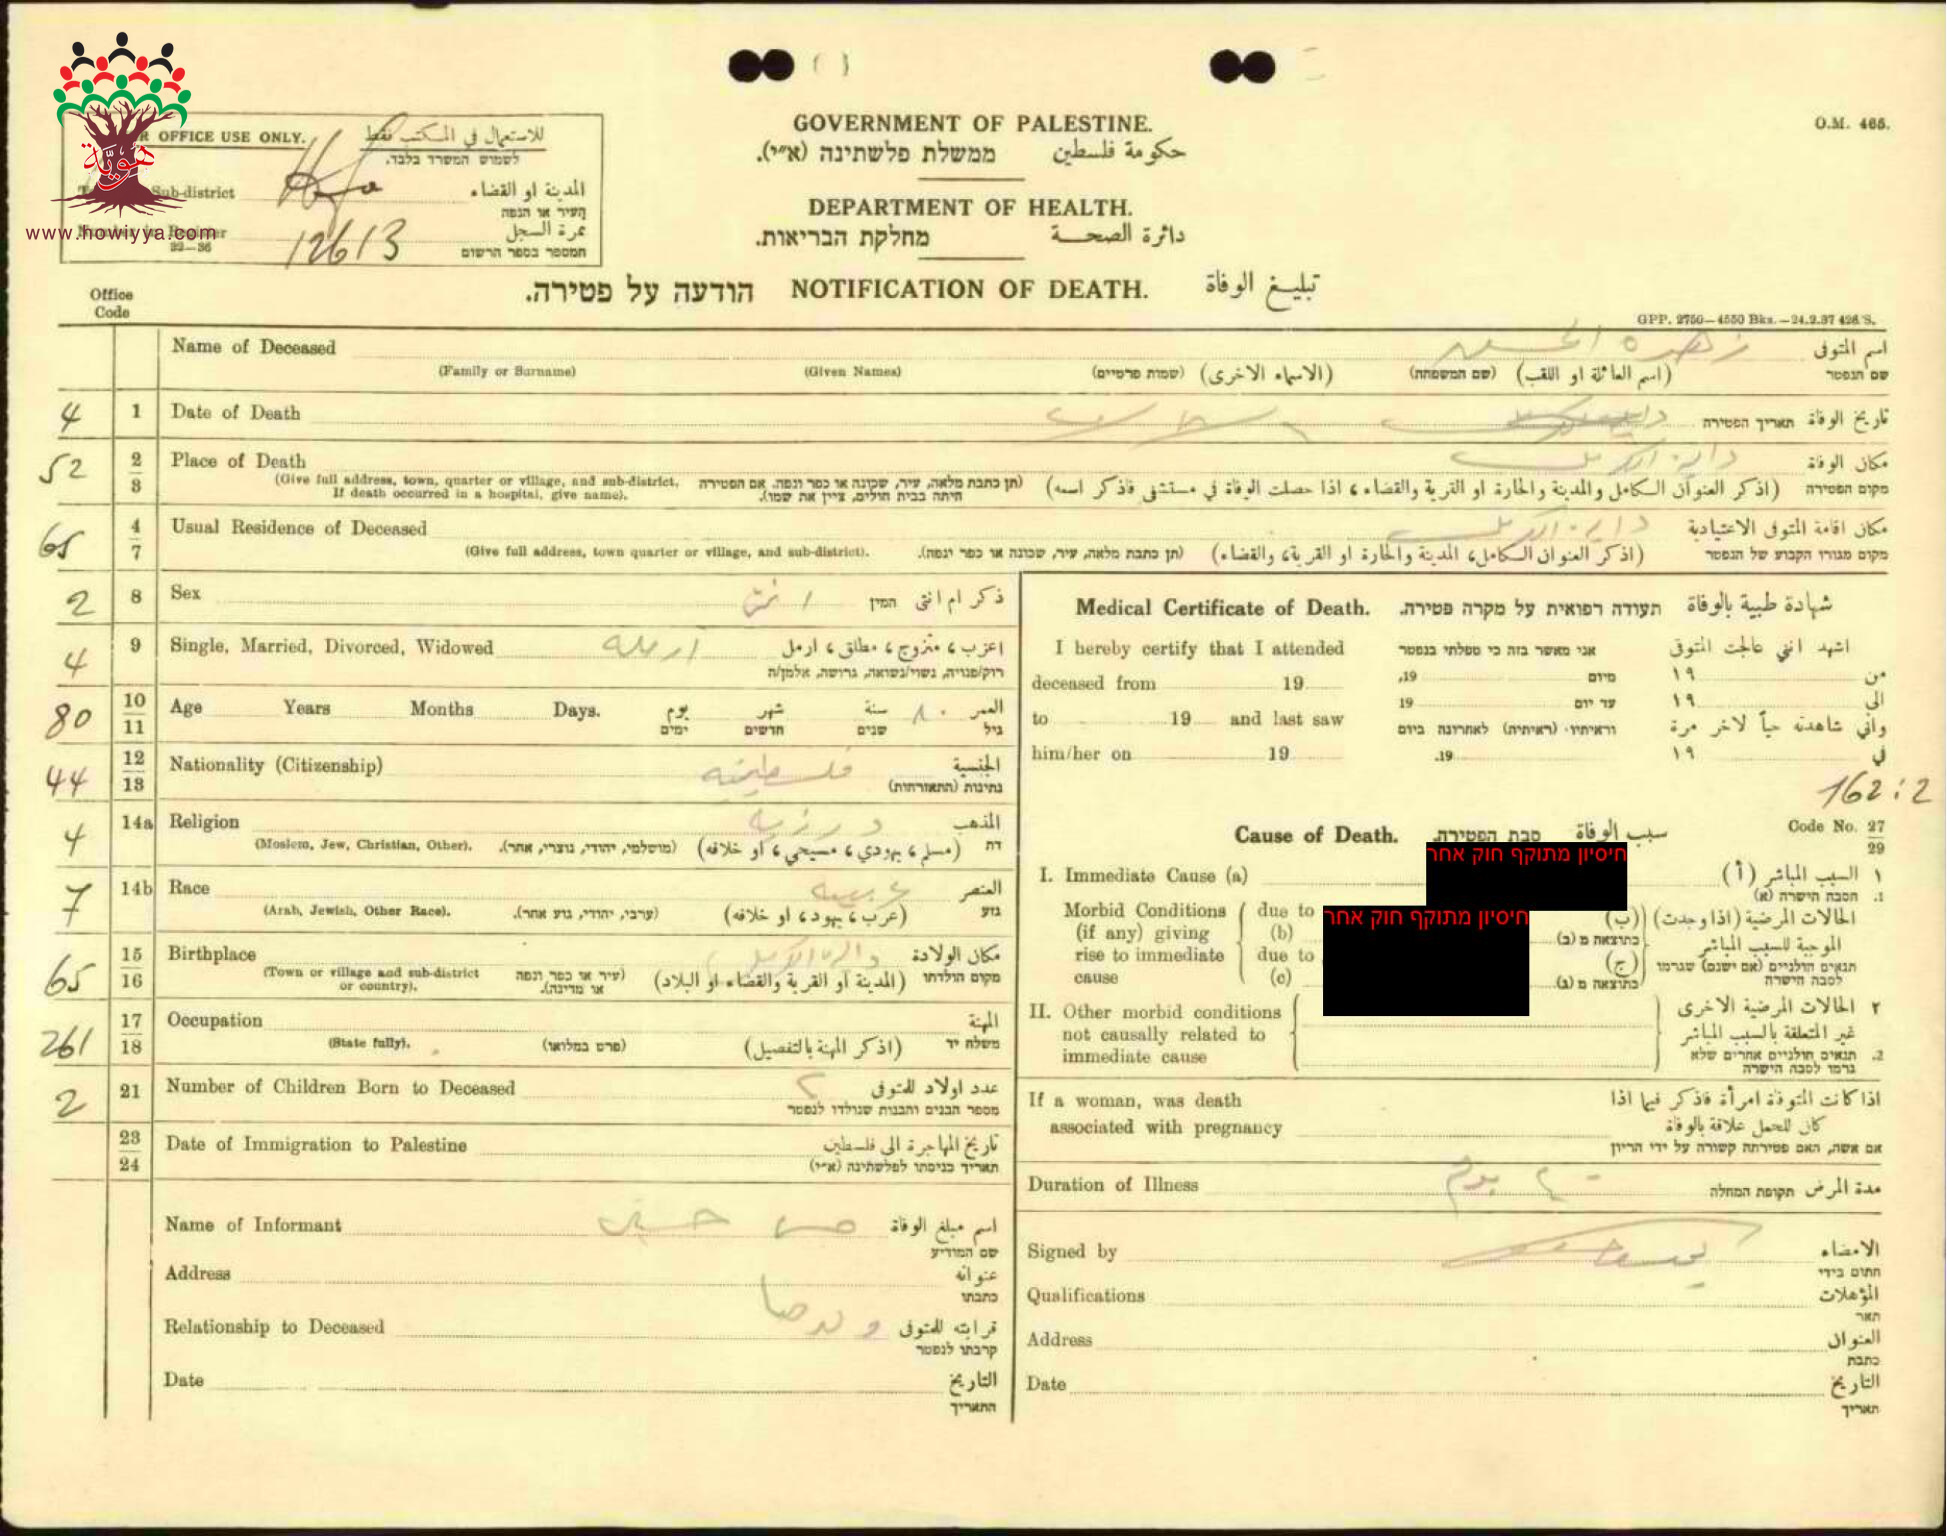 O.M. 465.
FOR OFFICE USE ONLY. للاستعمال في المكتب فقط
לשמוש המשרד בלבד.
Sub-district Haifa المدينة او القضاء
העיר או הנפה
www.howiyya.com
هويّة
12613 نمرة السجل
22—36 המספר בספר הרשום
GOVERNMENT OF PALESTINE.
ממשלת פלשתינה (א״י). حكومة فلسطين
DEPARTMENT OF HEALTH.
מחלקת הבריאות. دائرة الصحة
הודעה על פטירה. NOTIFICATION OF DEATH. تبليغ الوفاة
Office Code
GPP. 2750—4550 Bks.—24.2.37 426/S.
Name of Deceased زهره اسم المتوفى
(Family or Surname) (Given Names) (שמות פרטיים) (الاسماء الاخرى) (שם המשפחה) (اسم العائلة او اللقب) שם הנפטר
4 1 Date of Death תאריך הפטירה تاريخ الوفاة
52 2/3 Place of Death دالية الكرمل مكان الوفاة
(Give full address, town, quarter or village, and sub-district. If death occurred in a hospital, give name). (תן כתבת מלאה, עיר, שכונה או כפר ונפה. אם הפטירה היתה בבית חולים, ציין את שמו). (اذكر العنوان الكامل والمدينة والحارة او القرية والقضاء، اذا حصلت الوفاة في مستشفى فاذكر اسمه) מקום הפטירה
65 4/7 Usual Residence of Deceased دالية الكرمل مكان اقامة المتوفى الاعتيادية
(Give full address, town quarter or village, and sub-district). (תן כתבת מלאה, עיר, שכונה או כפר ונפה). (اذكر العنوان الكامل، المدينة والحارة او القرية، والقضاء) מקום מגורו הקבוע של הנפטר
2 8 Sex انثى המין ذكر ام انثى
4 9 Single, Married, Divorced, Widowed ارمله اعزب، متزوج، مطلق، ارمل
רוק/פנויה, נשוי/נשואה, גרושה, אלמן/ה
80 10/11 Age Years Months Days. يوم شهر سنة ٨٠ العمر
ימים חדשים שנים גיל
44 12/13 Nationality (Citizenship) فلسطينيه الجنسية
נתינות (התאזרחות)
4 14a Religion درزيه المذهب
(Moslem, Jew, Christian, Other). (מושלמי, יהודי, נוצרי, אחר). (مسلم، يهودي، مسيحي، او خلافه) דת
7 14b Race عربيه العنصر
(Arab, Jewish, Other Race). (ערבי, יהודי, גזע אחר). (عرب، يهود، او خلافه) גזע
65 15/16 Birthplace دالية الكرمل مكان الولادة
(Town or village and sub-district or country). (עיר או כפר, ונפה או מדינה). (المدينة او القرية والقضاء او البلاد) מקום הולדתו
261 17/18 Occupation المهنة
(State fully). (פרט במלואו) (اذكر المهنة بالتفصيل) משלח יד
2 21 Number of Children Born to Deceased ٢ عدد اولاد للمتوفى
מספר הבנים והבנות שנולדו לנפטר
23/24 Date of Immigration to Palestine تاريخ المهاجرة الى فلسطين
תאריך כניסתו לפלשתינה (א״י)
Name of Informant حسين اسم مبلغ الوفاة
שם המודיע
Address عنوانه
כתבתו
Relationship to Deceased ولدها قرابته للمتوفى
קרבתו לנפטר
Date التاريخ
התאריך
Medical Certificate of Death. תעודה רפואית על מקרה פטירה. شهادة طبية بالوفاة
I hereby certify that I attended אני מאשר בזה כי טפלתי בנפטר اشهد انني عالجت المتوفى
deceased from 19 מיום 19, من ١٩
to 19 and last saw עד יום 19 الى ١٩
וראיתיו (ראיתיה) לאחרונה ביום واني شاهدته حياً لاخر مرة
him/her on 19 19. في ١٩
162:2
Cause of Death. סבת הפטירה. سبب الوفاة Code No. 27/29
חיסיון מתוקף חוק אחר
I. Immediate Cause (a) ١ السبب المباشر (أ)
1. הסבה הישרה (א)
חיסיון מתוקף חוק אחר
Morbid Conditions (if any) giving rise to immediate cause due to (b) due to (c)
الحالات المرضية (اذا وجدت) (ب) الموجبة للسبب المباشر (ج)
כתוצאה מ (ב) תנאים חולניים (אם ישנם) שגרמו לסבה הישרה כתוצאה מ (ג)
II. Other morbid conditions not causally related to immediate cause
٢ الحالات المرضية الاخرى غير المتعلقة بالسبب المباشر
2. תנאים חולניים אחרים שלא גרמו לסבה הישרה
If a woman, was death associated with pregnancy
اذا كانت المتوفاة امرأة فاذكر فيما اذا كان للحمل علاقة بالوفاة
אם אשה, האם פטירתה קשורה על ידי הריון
Duration of Illness يوم תקופת המחלה مدة المرض
Signed by الامضاء
חתום בידי
Qualifications المؤهلات
תאר
Address العنوان
כתבת
Date التاريخ
תאריך